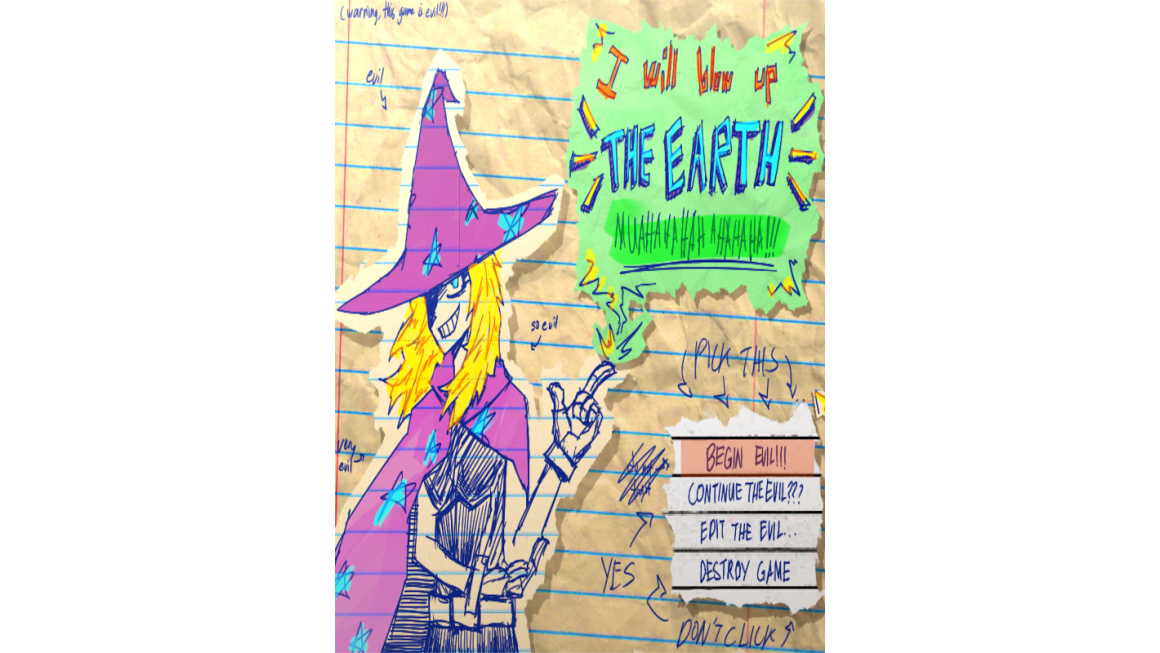 (warning, this game is evil!!!)
evil
I will blow up
THE EARTH
MUAHAHAHAH AHAHAHA!!!
so evil
PICK THIS
very
evil
BEGIN EVIL!!!
CONTINUE THE EVIL???
EDIT THE EVIL...
DESTROY GAME
YES
DON'T CLICK